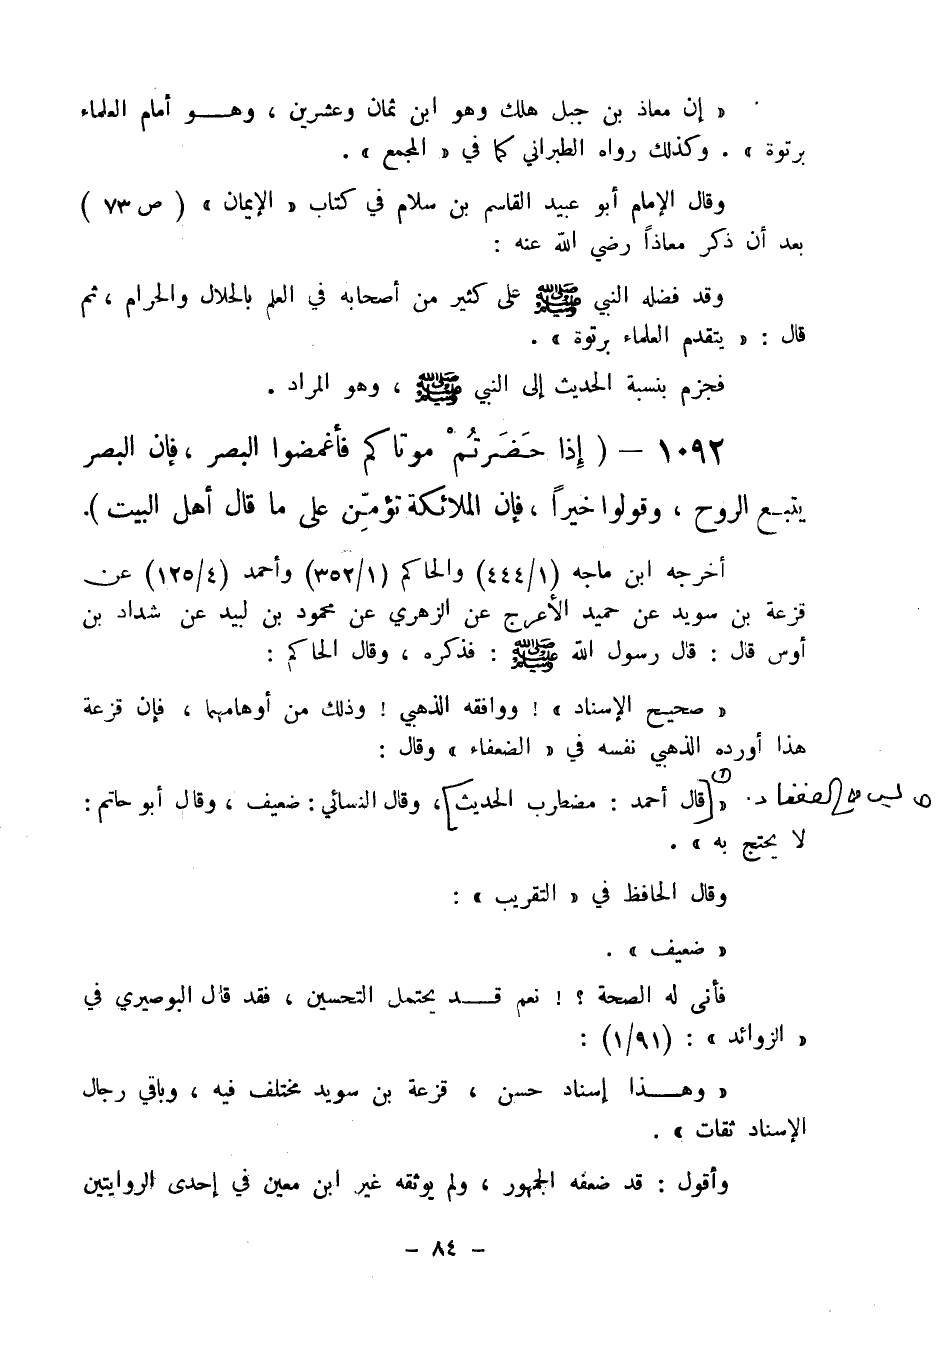 « إن معاذ بن جبل هلك وهو ابن ثمان وعشرين ، وهـــو أمام العلماء
برتوة » . وكذلك رواه الطبراني كما في « المجمع » .
وقال الإمام أبو عبيد القاسم بن سلام في كتاب « الإيمان » ( ص ٧٣ )
بعد أن ذكر معاذاً رضي الله عنه :
وقد فضله النبي ﷺ على كثير من أصحابه في العلم بالحلال والحرام ، ثم
قال : « يتقدم العلماء برتوة » .
فجزم بنسبة الحديث إلى النبي ﷺ ، وهو المراد .
١٠٩٢ – ( إِذا حَضَرتُمْ موتاكم فأغمضوا البصر ، فإن البصر
يتبـع الروح ، وقولوا خيراً ، فإن الملائكة تؤمّن على ما قال أهل البيت ).
أخرجه ابن ماجه (٤٤٤/١) والحاكم (٣٥٢/١) وأحمد (١٢٥/٤) عن
قزعة بن سويد عن حميد الأعرج عن الزهري عن محمود بن لبيد عن شداد بن
أوس قال : قال رسول الله ﷺ : فذكره ، وقال الحاكم :
« صحيح الإسناد » ! ووافقه الذهبي ! وذلك من أوهامهما ، فإن قزعة
هذا أورده الذهبي نفسه في « الضعفاء » وقال :
« [قال أحمد : مضطرب الحديث] ، وقال النسائي : ضعيف ، وقال أبو حاتم :
(١) ليس في الضعفاء
(١)
لا يحتج به » .
وقال الحافظ في « التقريب » :
« ضعيف » .
فأنى له الصحة ؟ ! نعم قـــد يحتمل التحسين ، فقد قال البوصيري في
« الزوائد » : (١/٩١) :
« وهـــذا إسناد حسن ، قزعة بن سويد مختلف فيه ، وباقي رجال
الإسناد ثقات » .
وأقول : قد ضعفه الجمهور ، ولم يوثقه غير ابن معين في إحدى الروايتين
– ٨٤ –